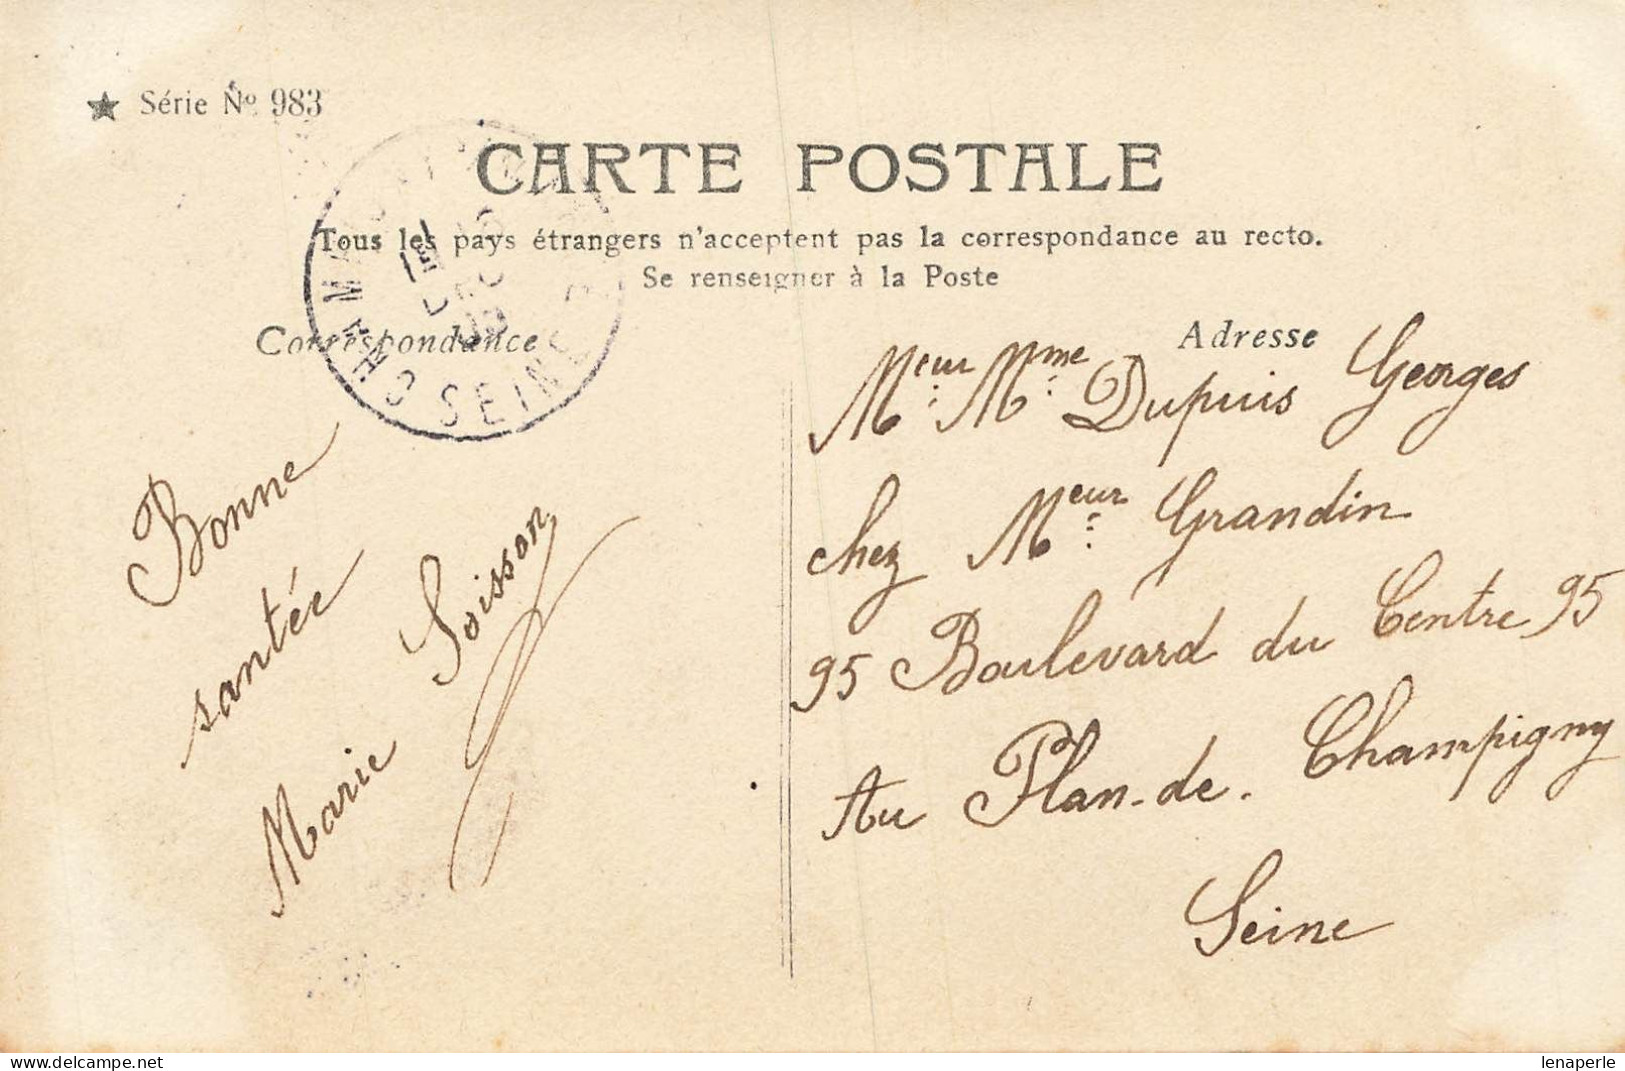 ★ Série Nº 983
CARTE POSTALE
Tous les pays étrangers n'acceptent pas la correspondance au recto.
Se renseigner à la Poste
Correspondance
Adresse
SEINE
Bonne
santée
Marie Soisson
Meur Mme Dupuis Georges
chez Meur Grandin
95 Boulevard du Centre 95
Au Plan-de-Champigny
Seine
https://www.delcampe.net
lenaperle